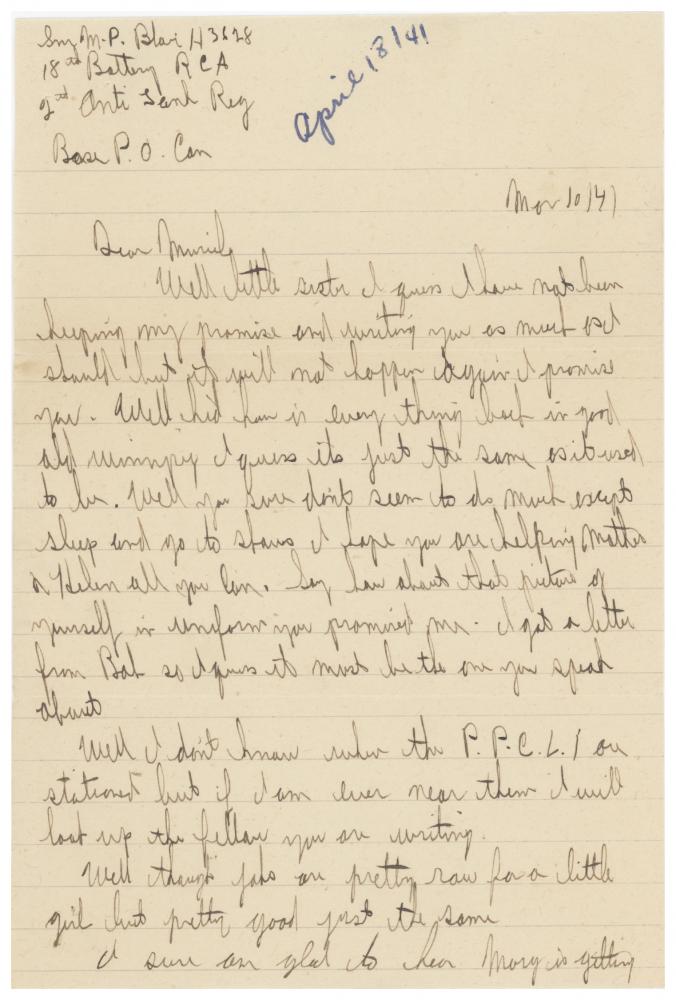 Sng M.P. Blair H3628
18th Battery RCA
2nd Anti Tank Reg
Base P.O. Can
April 18/41
Mar 10/41
Dear Muriel
Well little sister I guess I have not been
keeping my promise and writing you as much as I
should but it will not happen again I promise
you. Well kid how is every thing back in good
old winnipeg I guess its just the same as it used
to be. Well you sure don't seem to do much except
sleep and go to shows I hope you are helping Mother
& Helen all you can. Say how about that picture of
yourself in uniform you promised me. I got a letter
from Bob so I guess it must be the one you speak
about
Well I don't know where the P.P.C.L.I are
stationed but if I am ever near them I will
look up the fellow you are writing.
Well though jokes are pretty raw for a little
girl but pretty good just the same
I sure am glad to hear Mary is getting